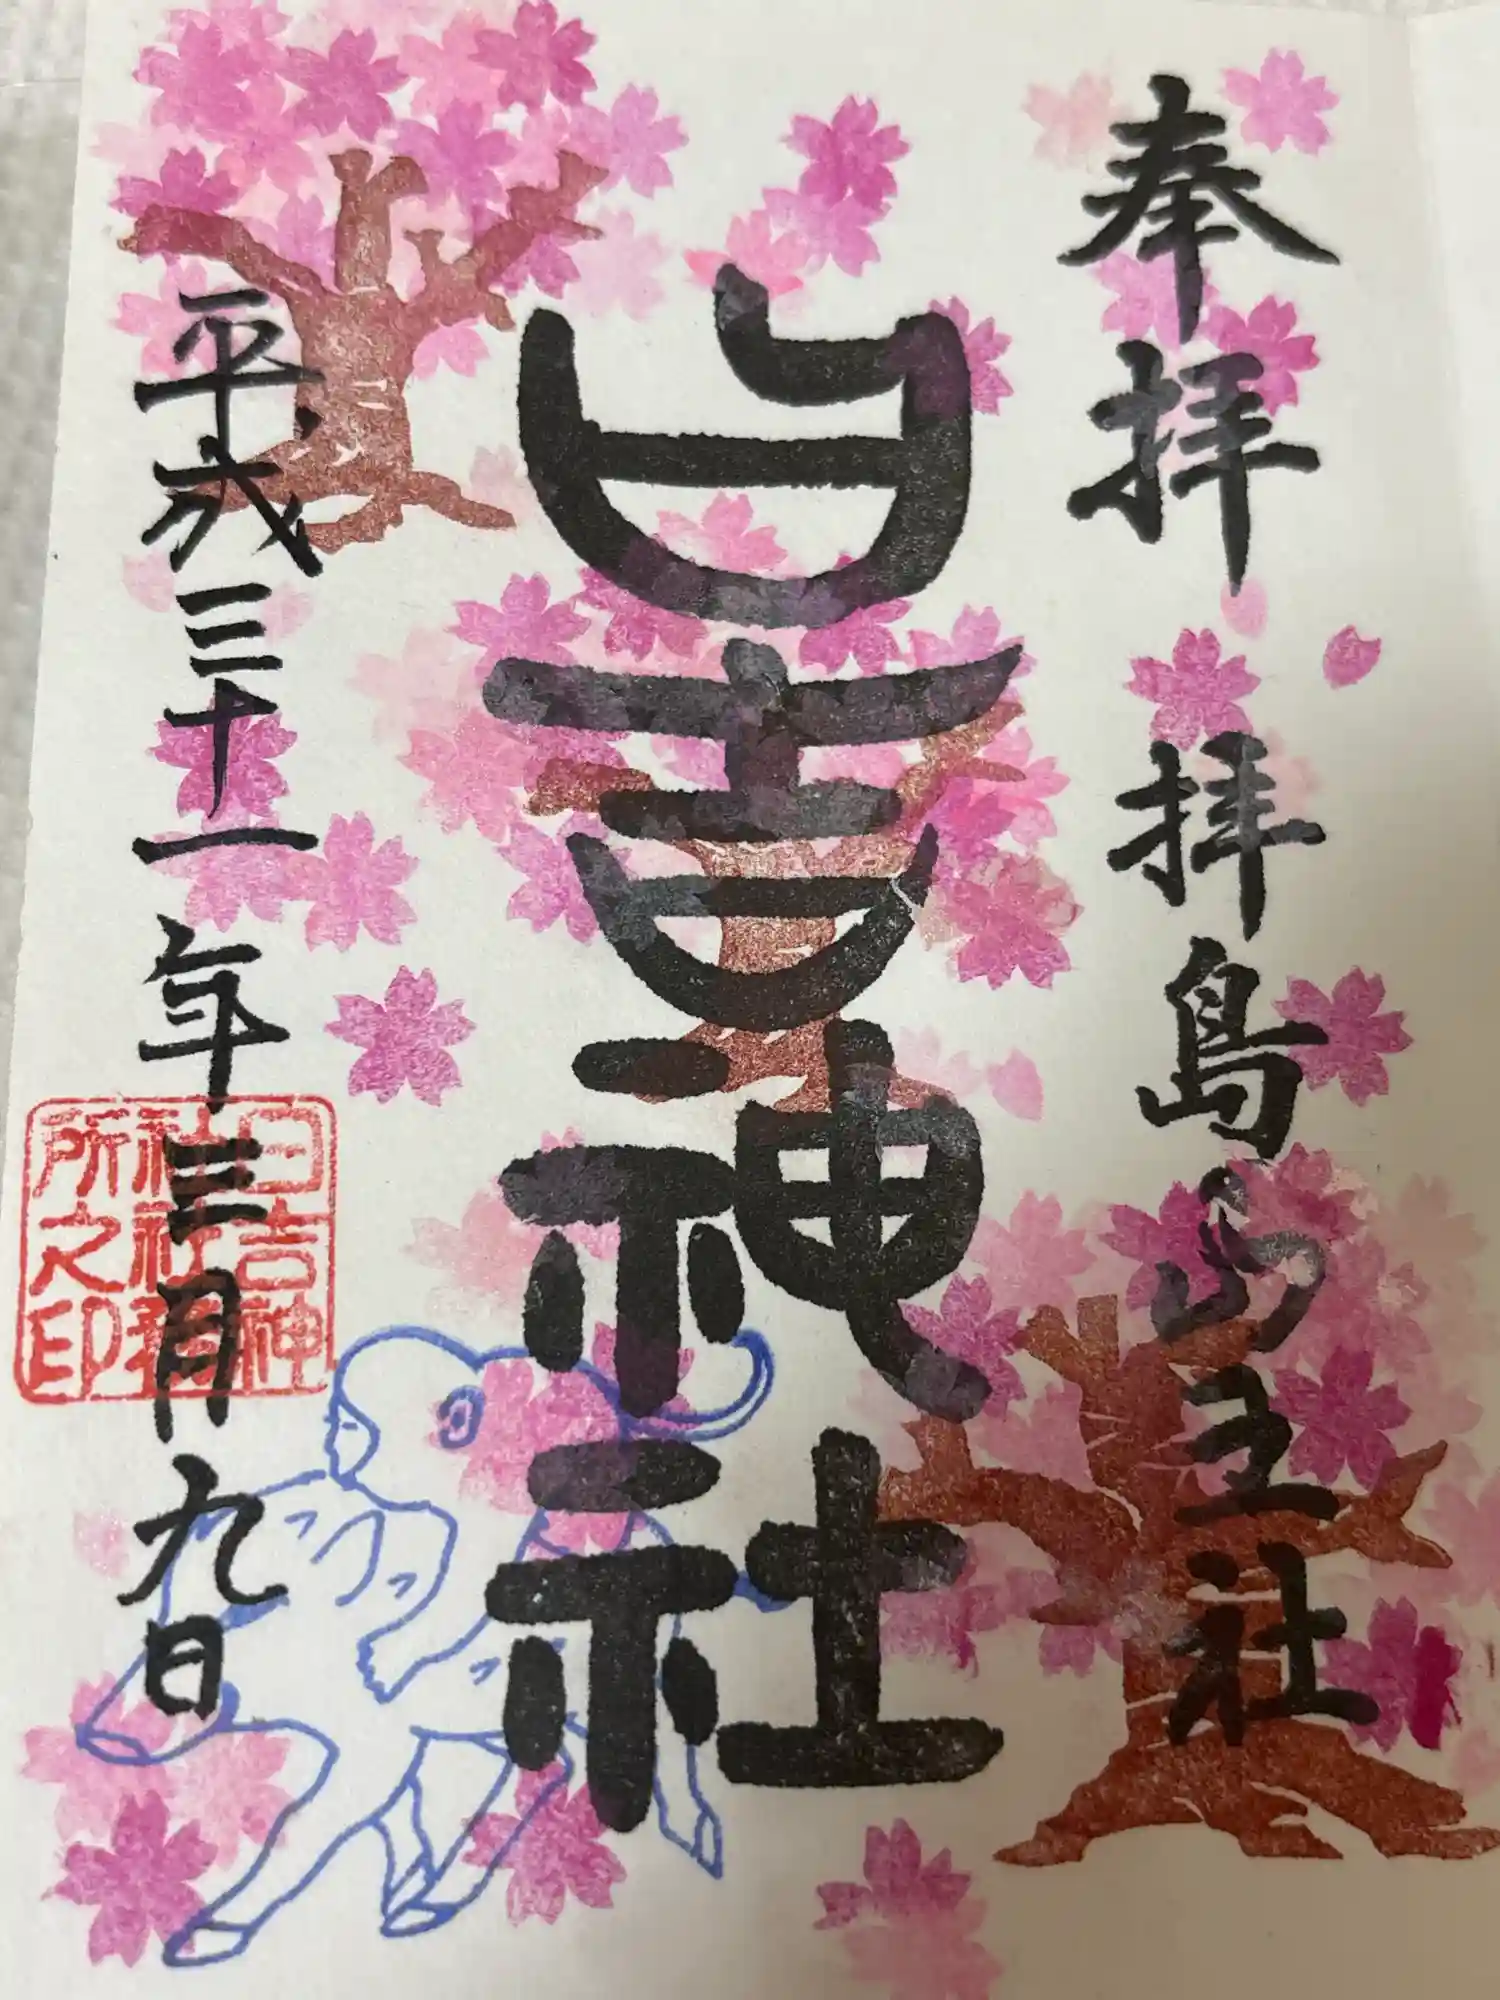 奉拝
拝島山王社
日吉神社
平成三十一年三月九日
日吉神
社社務
所之印